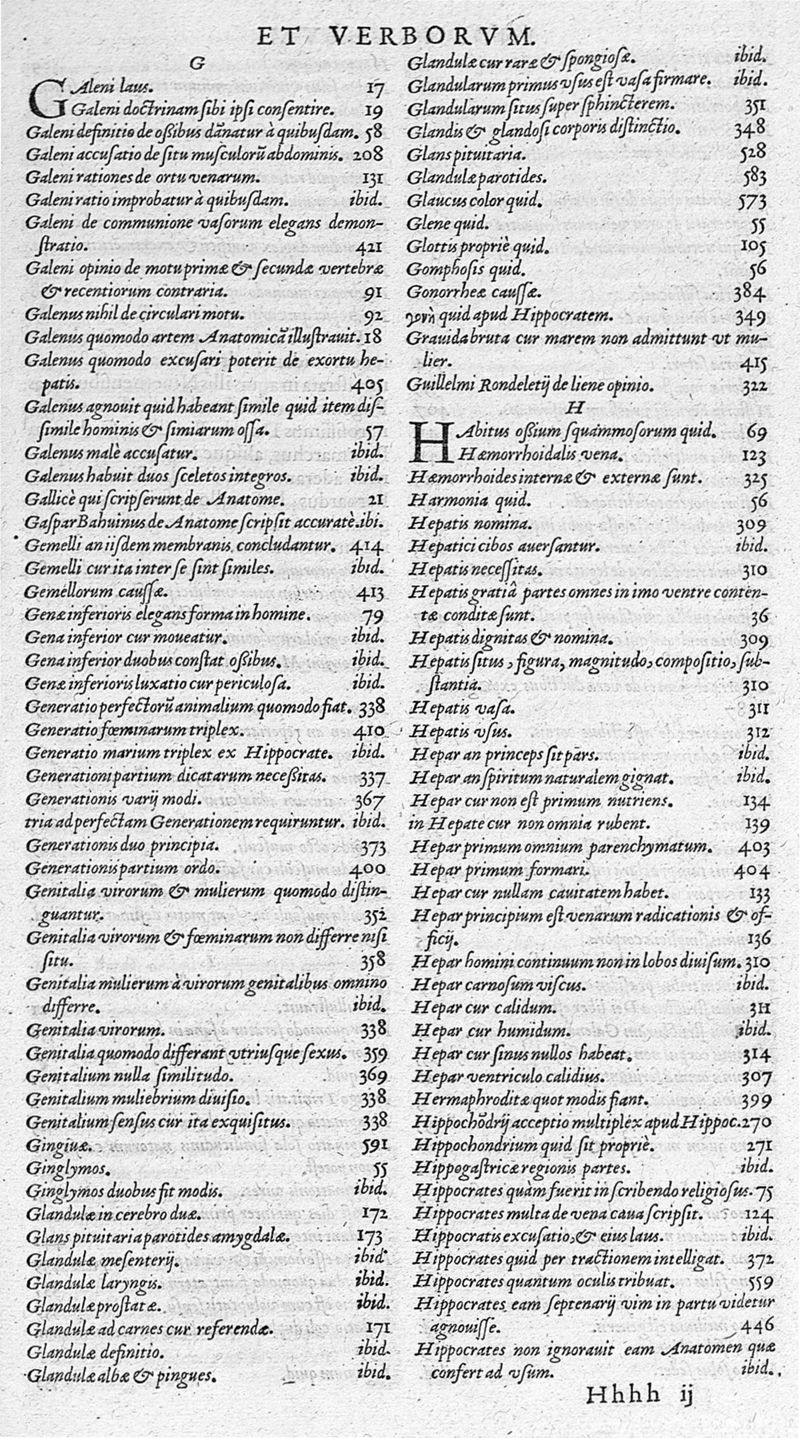 ET VERBORVM.
G
GAleni laus. 17
Galeni doctrinam sibi ipsi consentire. 19
Galeni definitio de oßibus dānatur à quibusdam. 58
Galeni accusatio de situ musculorũ abdominis. 208
Galeni rationes de ortu venarum. 131
Galeni ratio improbatur à quibusdam. ibid.
Galeni de communione vasorum elegans demon-
stratio. 421
Galeni opinio de motu primæ & secundæ vertebræ
& recentiorum contraria. 91
Galenus nihil de circulari motu. 92
Galenus quomodo artem Anatomicā illustrauit. 18
Galenus quomodo excusari poterit de exortu he-
patis. 405
Galenus agnouit quid habeant simile quid item dis-
simile hominis & simiarum ossa. 57
Galenus malè accusatur. ibid.
Galenus habuit duos sceletos integros. ibid.
Gallicè qui scripserunt de Anatome. 21
Gaspar Bahuinus de Anatome scripsit accuratè. ibi.
Gemelli an iisdem membranis concludantur. 414
Gemelli cur ita inter se sint similes. ibid.
Gemellorum caussæ. 413
Genæ inferioris elegans forma in homine. 79
Gena inferior cur moueatur. ibid.
Gena inferior duobus constat oßibus. ibid.
Genæ inferioris luxatio cur periculosa. ibid.
Generatio perfectorũ animalium quomodo fiat. 338
Generatio fœminarum triplex. 410
Generatio marium triplex ex Hippocrate. ibid.
Generationi partium dicatarum neceßitas. 337
Generationis varij modi. 367
tria ad perfectam Generationem requiruntur. ibid.
Generationis duo principia. 373
Generationis partium ordo. 400
Genitalia virorum & mulierum quomodo distin-
guantur. 352
Genitalia virorum & fœminarum non differre nisi
situ. 358
Genitalia mulierum à virorum genitalibus omnino
differre. ibid.
Genitalia virorum. 338
Genitalia quomodo differant vtriusque sexus. 359
Genitalium nulla similitudo. 369
Genitalium muliebrium diuisio. 338
Genitalium sensus cur ita exquisitus. 338
Gingiuæ. 591
Ginglymos. 55
Ginglymos duobus fit modis. ibid.
Glandulæ in cerebro duæ. 172
Glans pituitaria parotides amygdalæ. 173
Glandulæ mesenterij. ibid.
Glandulæ laryngis. ibid.
Glandulæ prostatæ. ibid.
Glandulæ ad carnes cur referendæ. 171
Glandulæ definitio. ibid.
Glandulæ albæ & pingues. ibid.
Glandulæ cur raræ & spongiosæ. ibid.
Glandularum primus vsus est vasa firmare. ibid.
Glandularum situs super sphincterem. 351
Glandis & glandosi corporis distinctio. 348
Glans pituitaria. 528
Glandulæ parotides. 583
Glaucus color quid. 573
Glene quid. 55
Glottis propriè quid. 105
Gomphosis quid. 56
Gonorrheæ caussæ. 384
γονὴ quid apud Hippocratem. 349
Grauida bruta cur marem non admittunt vt mu-
lier. 415
Guillelmi Rondeletij de liene opinio. 322
H
HAbitus oßium squammosorum quid. 69
Hæmorrhoidalis vena. 123
Hæmorrhoides internæ & externæ sunt. 325
Harmonia quid. 56
Hepatis nomina. 309
Hepatici cibos auersantur. ibid.
Hepatis necessitas. 310
Hepatis gratiâ partes omnes in imo ventre conten-
tæ conditæ sunt. 36
Hepatis dignitas & nomina. 309
Hepatis situs, figura, magnitudo, compositio, sub-
stantia. 310
Hepatis vasa. 311
Hepatis vsus. 312
Hepar an princeps sit pars. ibid.
Hepar an spiritum naturalem gignat. ibid.
Hepar cur non est primum nutriens. 134
in Hepate cur non omnia rubent. 139
Hepar primum omnium parenchymatum. 403
Hepar primum formari. 404
Hepar cur nullam cauitatem habet. 133
Hepar principium est venarum radicationis & of-
ficij. 136
Hepar homini continuum non in lobos diuisum. 310
Hepar carnosum viscus. ibid.
Hepar cur calidum. 311
Hepar cur humidum. ibid.
Hepar cur sinus nullos habeat. 314
Hepar ventriculo calidius. 307
Hermaphroditæ quot modis fiant. 399
Hippochōdrij acceptio multiplex apud Hippoc. 270
Hippochondrium quid sit propriè. 271
Hippogastricæ regionis partes. ibid.
Hippocrates quàm fuerit in scribendo religiosus. 75
Hippocrates multa de vena caua scripsit. 124
Hippocratis excusatio, & eius laus. ibid.
Hippocrates quid per tractionem intelligat. 372
Hippocrates quantum oculis tribuat. 559
Hippocrates eam septenarij vim in partu videtur
agnouisse. 446
Hippocrates non ignorauit eam Anatomen quæ
confert ad vsum. ibid.
Hhhh ij